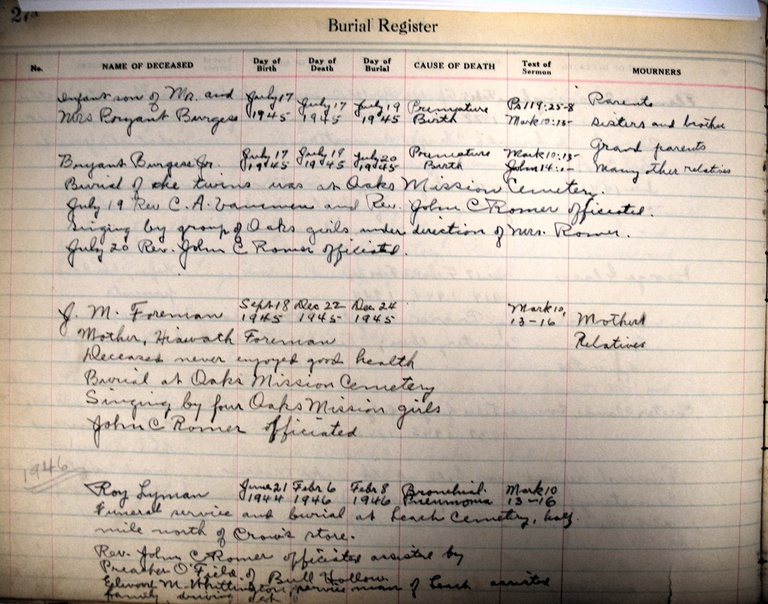 27
Burial Register
No. NAME OF DECEASED Day of Birth Day of Death Day of Burial CAUSE OF DEATH Text of Sermon MOURNERS
Infant son of Mr. and July 17 July 17 July 19 Premature Ps 119:25-8 Parents
Mrs Bryant Burgess 1945 1945 1945 Birth Mark 10:13- Sisters and brother
Grand parents
Bryant Burgess Jr. July 17 July 19 July 20 Premature Mark 10:13- Many other relatives
1945 1945 1945 Birth John 14:1-
Burial of the twins was at Oaks Mission Cemetery.
July 19 Rev C. A. and Rev. John C Romer officiated.
Singing by group of Oaks girls under direction of Mrs. Romer.
July 20 Rev. John C Romer officiated.
J. M. Foreman Sept 18 Dec 22 Dec. 24 Mark 10, Mother
1945 1945 1945 13-16 Relatives
Mother, Foreman
Deceased never enjoyed good health
Burial at Oaks Mission Cemetery
Singing by four Oaks Mission girls
John C Romer officiated
1946
Roy Lyman June 21 Febr 6 Febr 8 Bronchial Mark 10
1944 1946 1946 Pneumonia 13-16
Funeral service and burial at Leach Cemetery, half
mile north of Crow's store.
Rev. John C Romer officiated assisted by
Preacher O'Field of Bull Hollow
M. Whittington, service man of Leach assisted
family driving